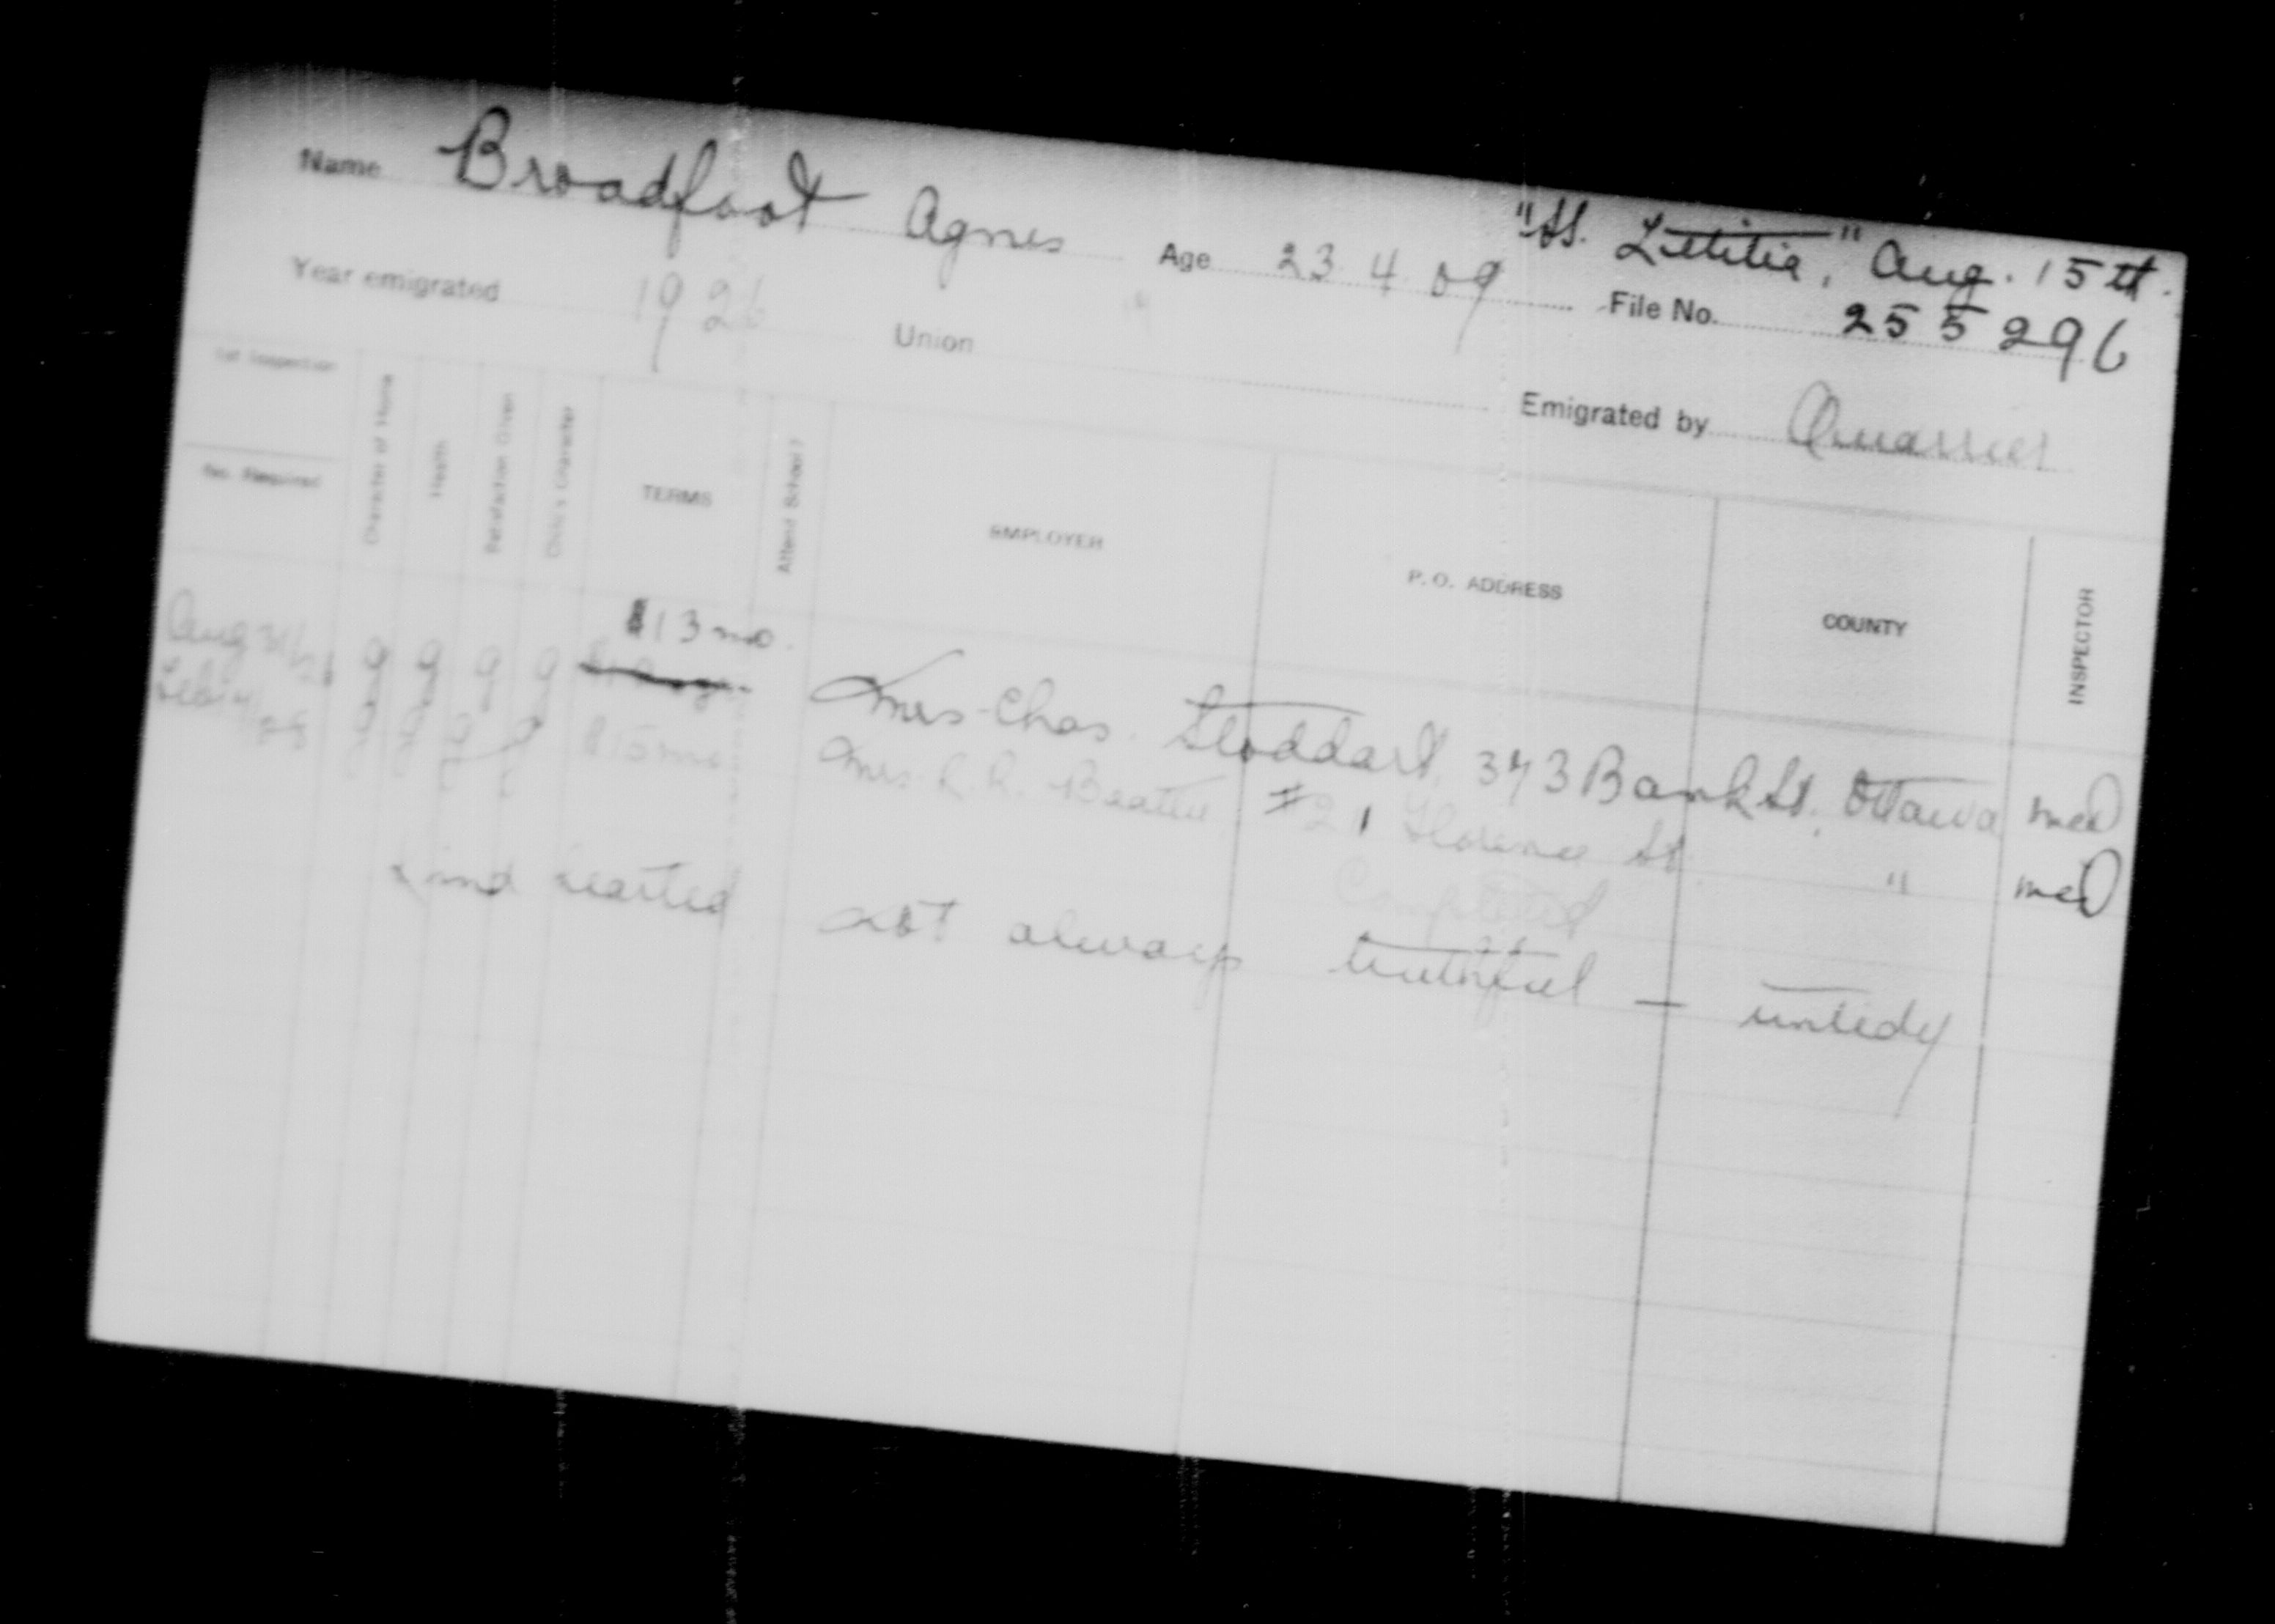 "SS. Letitia," Aug. 15th.
Name Broadfoot Agnes Age 23 4 09 File No. 255296
Year emigrated 1926 Union Emigrated by Quarrier
1st Inspection
No. Required
Character of Home
Health
Satisfaction Given
Child's Character
TERMS
Attend School?
EMPLOYER
P. O. ADDRESS
COUNTY
INSPECTOR
$13 mo.
Aug 31/26 g g g g Mrs Chas. Stoddart, 373 Bank St. Ottawa MED
Feb g g $15 mo Mrs. R. R. Beattie #21 Florence St. " MED
Completed
Kind hearted not always truthful — untidy